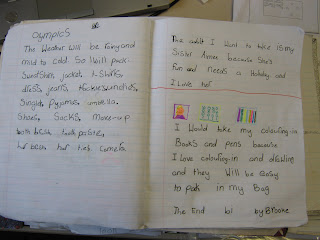 OLYMPICS
The Weather will be rainy and
mild to cold So I will pack.
Sundshirt, jacket, t-Shirts,
dress, jeans, trackie
Singlet, Pyjamas, umbrella.
Shoes, Socks, Make-up
tooth brush tooth paste,
hair ties Camera.
The adult I want to take is my
Sister Aimee because She's
fun and needs a Holiday and
I Love Her
I Would take my colouring-in
Books and pens because
I Love colouring-in and drawing
and they Will be easy
to pack in my Bag
The End lol by Brooke